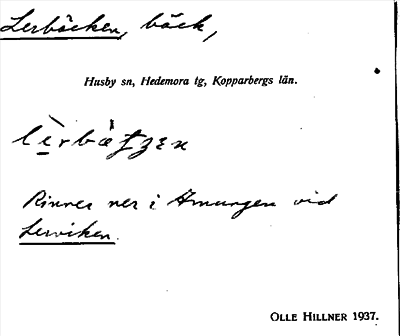 Lerbäcken, bäck,
Husby sn, Hedemora tg, Kopparbergs län.
Rinner ner i Amungen vid
Lerviken.
OLLE HILLNER 1937.